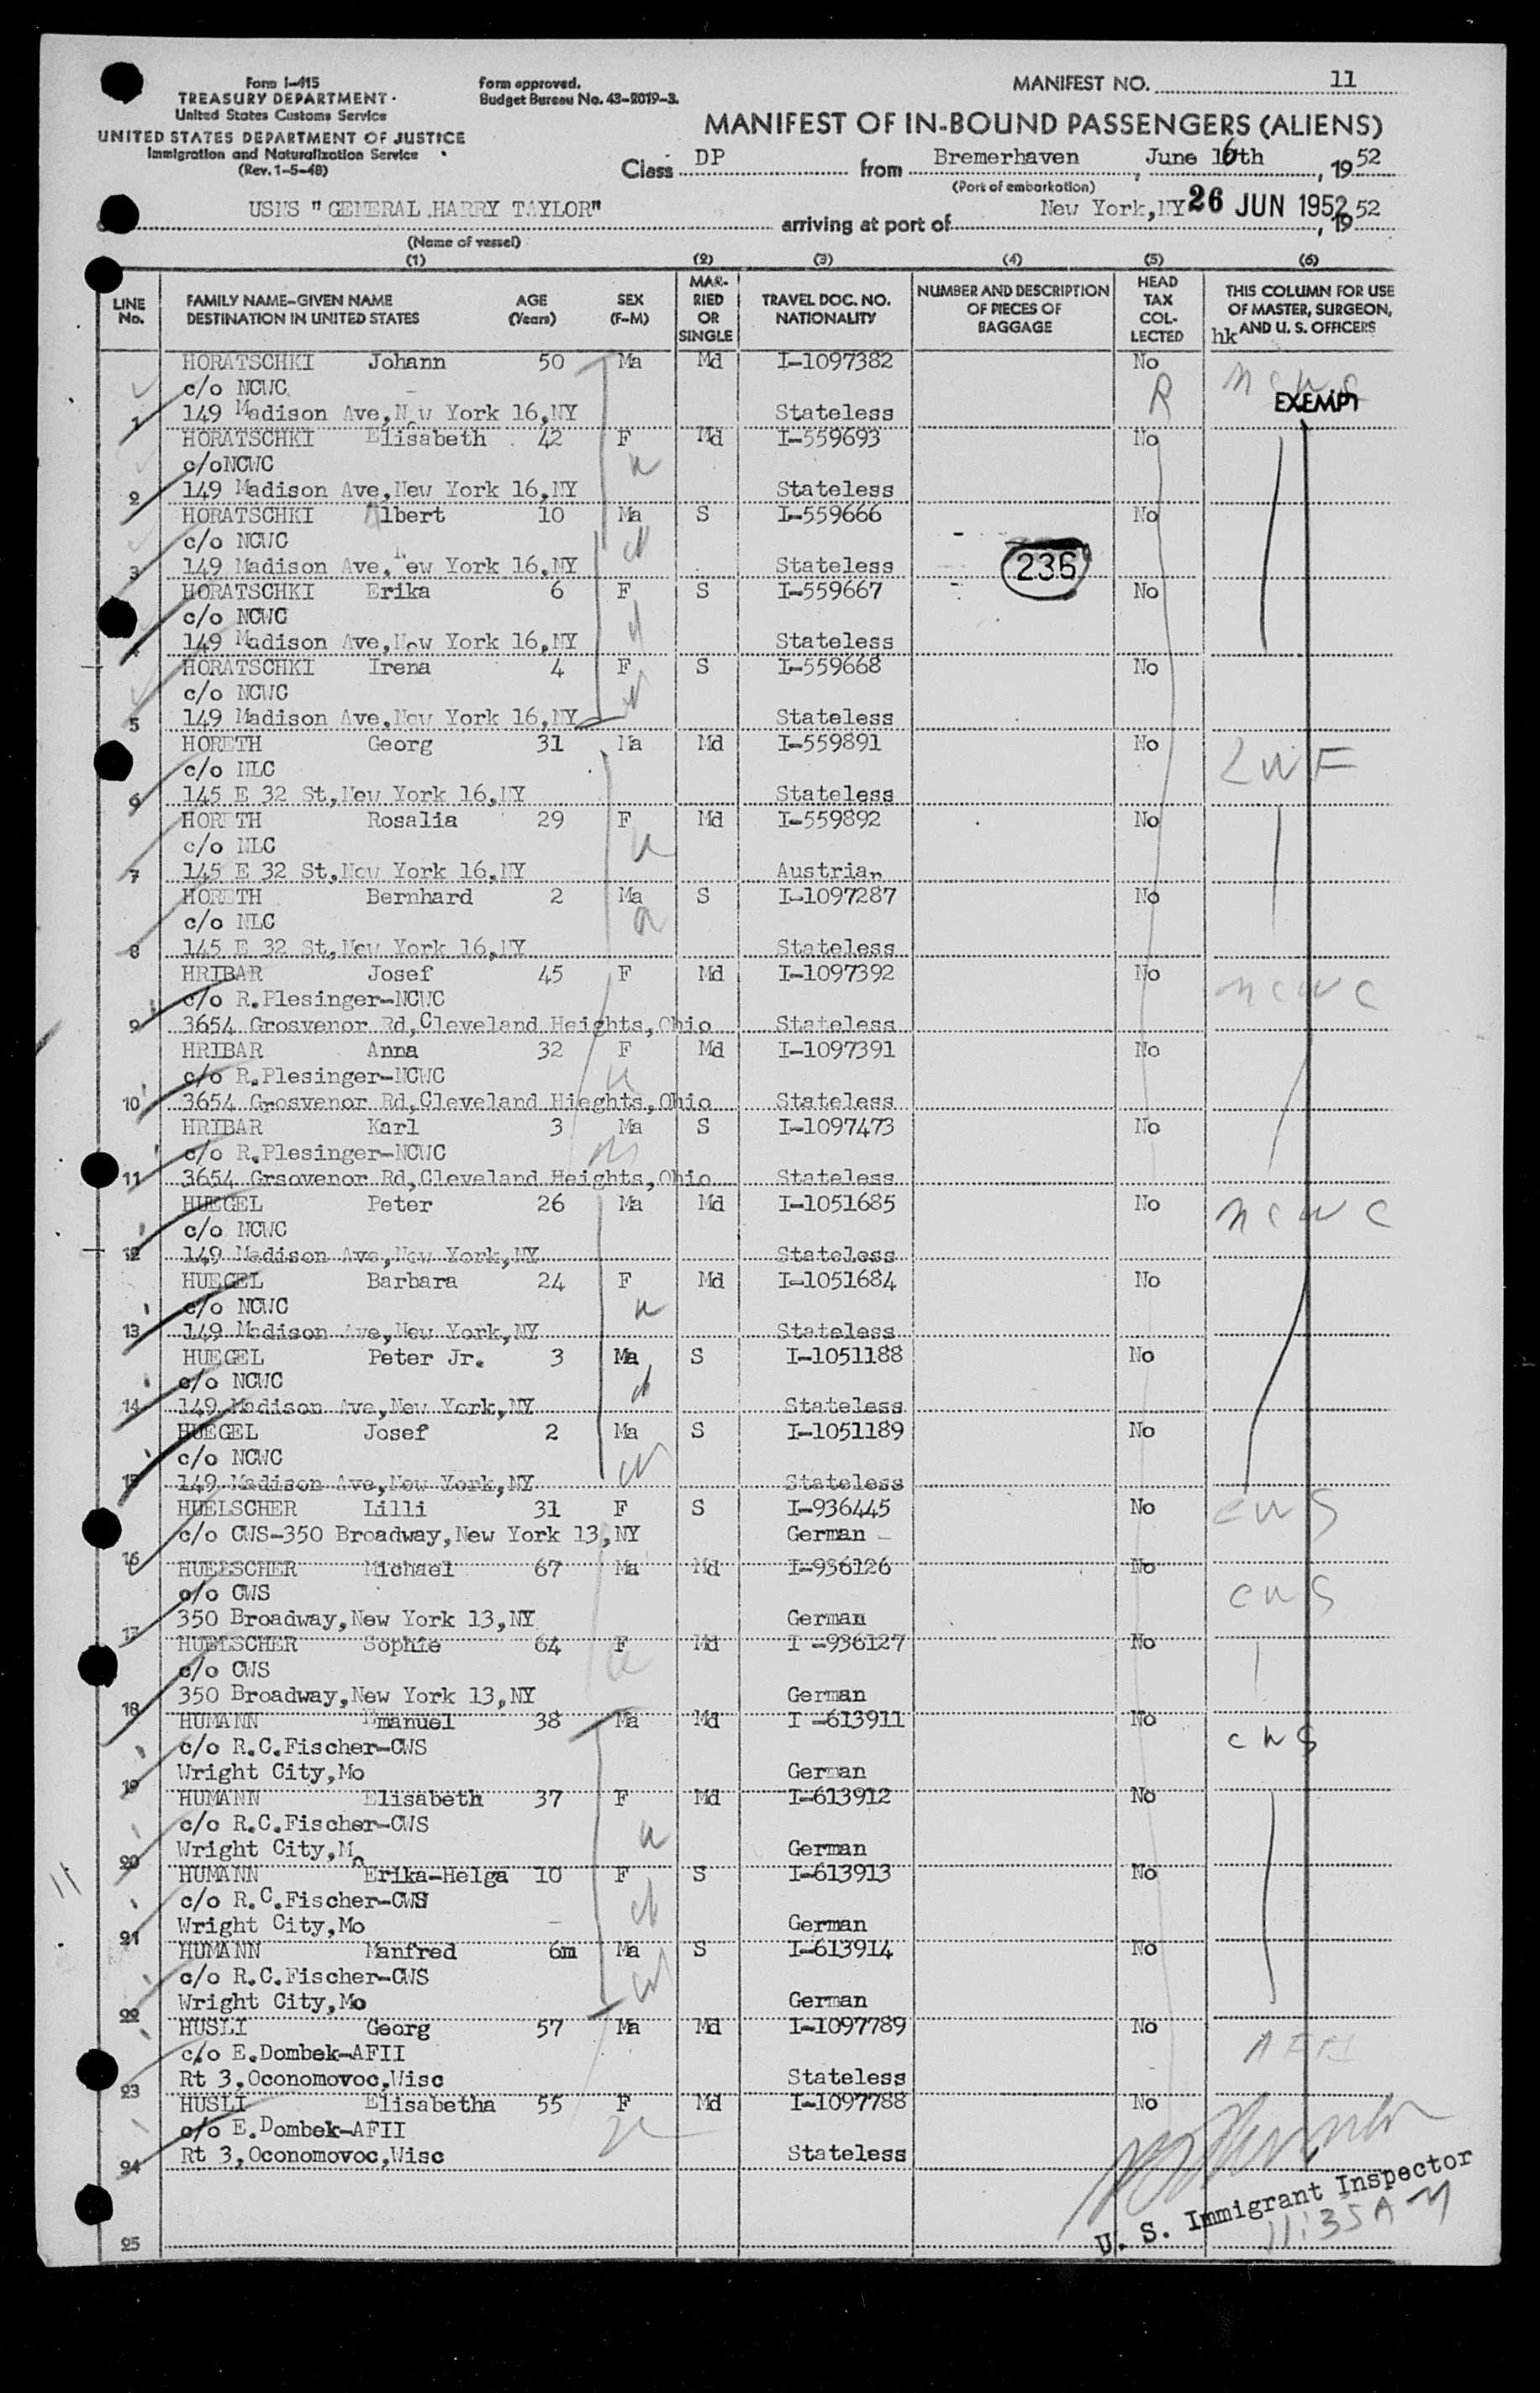 Form I-415
TREASURY DEPARTMENT
United States Customs Service
UNITED STATES DEPARTMENT OF JUSTICE
Immigration and Naturalization Service
(Rev. 1-5-48)
Form approved.
Budget Bureau No. 43-R019-3.
MANIFEST NO. 11
MANIFEST OF IN-BOUND PASSENGERS (ALIENS)
Class DP from Bremerhaven, June 16th, 1952
(Port of embarkation)
USNS "GENERAL HARRY TAYLOR" arriving at port of New York,NY 26 JUN 1952, 1952
(Name of vessel)
(1) (2) (3) (4) (5) (6)
LINE No. FAMILY NAME-GIVEN NAME DESTINATION IN UNITED STATES AGE (Years) SEX (F-M) MARRIED OR SINGLE TRAVEL DOC. NO. NATIONALITY NUMBER AND DESCRIPTION OF PIECES OF BAGGAGE HEAD TAX COLLECTED THIS COLUMN FOR USE OF MASTER, SURGEON, AND U. S. OFFICERS
hk
HORATSCHKI Johann 50 Ma Md I-1097382 No
c/o NCWC R ncwc
1 149 Madison Ave,New York 16,NY Stateless EXEMPT
HORATSCHKI Elisabeth 42 F Md I-559693 No
c/oNCWC
2 149 Madison Ave,New York 16,NY Stateless
HORATSCHKI Albert 10 Ma S I-559666 No
c/o NCWC
3 149 Madison Ave,New York 16,NY Stateless 236
HORATSCHKI Erika 6 F S I-559667 No
c/o NCWC
4 149 Madison Ave,New York 16,NY Stateless
HORATSCHKI Irena 4 F S I-559668 No
c/o NCWC
5 149 Madison Ave,New York 16,NY Stateless
HORETH Georg 31 Ma Md I-559891 No
c/o NLC LWF
6 145 E 32 St,New York 16,NY Stateless
HORETH Rosalia 29 F Md I-559892 No
c/o NLC
7 145 E 32 St,New York 16,NY Austrian
HORETH Bernhard 2 Ma S I-1097287 No
c/o NLC
8 145 E 32 St,New York 16,NY Stateless
HRIBAR Josef 45 F Md I-1097392 No ncwc
c/o R.Plesinger-NCWC
9 3654 Grosvenor Rd,Cleveland Heights,Ohio Stateless
HRIBAR Anna 32 F Md I-1097391 No
c/o R.Plesinger-NCWC
10 3654 Grosvenor Rd,Cleveland Hieghts,Ohio Stateless
HRIBAR Karl 3 Ma S I-1097473 No
c/o R.Plesinger-NCWC
11 3654 Grsovenor Rd,Cleveland Heights,Ohio Stateless
HUEGEL Peter 26 Ma Md I-1051685 No ncwc
c/o NCWC
12 149 Madison Ave,New York,NY Stateless
HUEGEL Barbara 24 F Md I-1051684 No
c/o NCWC
13 149 Madison Ave,New York,NY Stateless
HUEGEL Peter Jr. 3 Ma S I-1051188 No
c/o NCWC
14 149 Madison Ave,New York,NY Stateless
HUEGEL Josef 2 Ma S I-1051189 No
c/o NCWC
15 149 Madison Ave,New York,NY Stateless
HUELSCHER Lilli 31 F S I-936445 No CWS
c/o CWS-350 Broadway,New York 13,NY German
16
HUELSCHER Michael 67 Ma Md I-936126 No
c/o CWS CWS
17 350 Broadway,New York 13,NY German
HUELSCHER Sophie 64 F Md I -936127 No
c/o CWS
18 350 Broadway,New York 13,NY German
HUMANN Emanuel 38 Ma Md I -613911 No
c/o R.C.Fischer-CWS CWS
19 Wright City,Mo German
HUMANN Elisabeth 37 F Md I-613912 No
c/o R.C.Fischer-CWS
20 Wright City,Mo German
HUMANN Erika-Helga 10 F S I-613913 No
c/o R.C.Fischer-CWS
21 Wright City,Mo German
HUMANN Manfred 6m Ma S I-613914 No
c/o R.C.Fischer-CWS
22 Wright City,Mo German
HUSLI Georg 57 Ma Md I-1097789 No
c/o E.Dombek-AFII
23 Rt 3,Oconomovoc,Wisc Stateless
HUSLI Elisabetha 55 F Md I-1097788 No
c/o E.Dombek-AFII
24 Rt 3,Oconomovoc,Wisc Stateless
25
U. S. Immigrant Inspector
11:35 AM
11